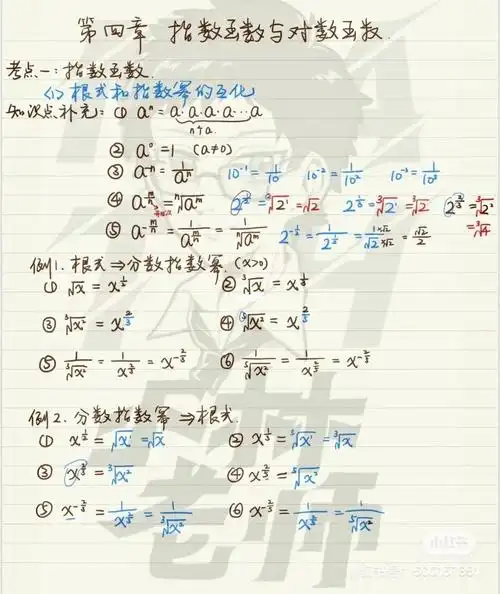 第四章 指数函数与对数函数.
考点一:指数函数.
<1> 根式和指数幂的互化
知识点补充:① aⁿ = a·a·a·a···a
n个a
② a⁰ = 1 (a≠0)
③ a⁻ⁿ = 1/aⁿ 10⁻¹ = 1/10 10⁻² = 1/10² 10⁻³ = 1/10³
④ a^(m/n) = ⁿ√aᵐ 2^(1/2) = ²√2¹ = √2 2^(1/3) = ³√2¹ = ³√2 2^(2/3) = ³√2² = ³√4
⑤ a^(-m/n) = 1/a^(m/n) = 1/ⁿ√aᵐ 2^(-1/2) = 1/2^(1/2) = 1×√2/√2×√2 = √2/2
例1. 根式 ⇒ 分数指数幂. (x>0)
① √x = x^(1/2) ② ³√x = x^(1/3)
③ ³√x² = x^(2/3) ④ ⁵√x² = x^(2/5)
⑤ 1/³√x² = 1/x^(2/3) = x^(-2/3) ⑥ 1/⁵√x² = 1/x^(2/5) = x^(-2/5)
例2. 分数指数幂 ⇒ 根式.
① x^(1/2) = √x¹ = √x ② x^(1/3) = ³√x¹ = ³√x
③ x^(2/3) = ³√x² ④ x^(2/5) = ⁵√x²
⑤ x^(-2/3) = 1/x^(2/3) = 1/³√x² ⑥ x^(-2/5) = 1/x^(2/5) = 1/⁵√x²
林
老师
小红书